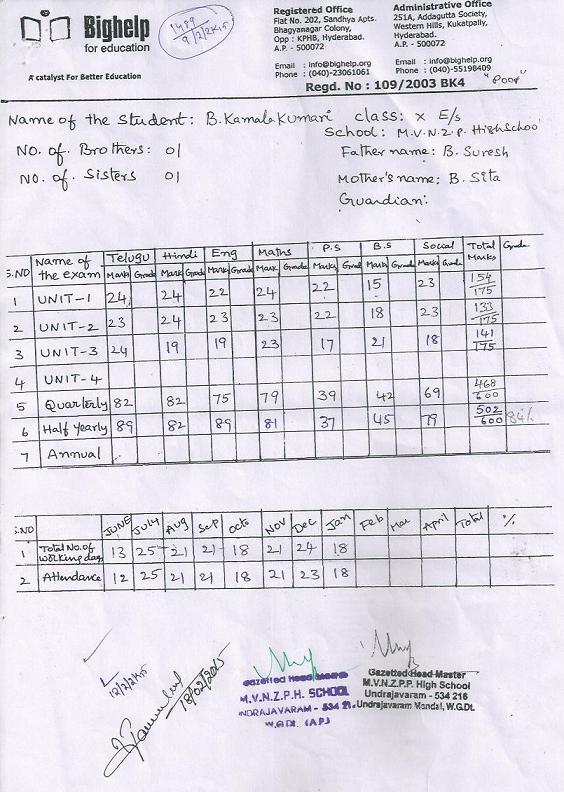 Bighelp
for education
A catalyst For Better Education
1489
9/2/2k15
Registered Office
Flat No. 202, Sandhya Apts.
Bhagyanagar Colony,
Opp : KPHB, Hyderabad.
A.P. - 500072
Email : info@bighelp.org
Phone : (040)-23061061
Administrative Office
251A, Addagutta Society,
Western Hills, Kukatpally,
Hyderabad.
A.P. - 500072
Email : info@bighelp.org
Phone : (040)-55198409
Regd. No : 109/2003 BK4
"Poor"
Name of the Student: B. Kamala Kumari class: X E/s
School: M.V.N.Z.P. High School
No. of Brothers: 01 Father name: B. Suresh
No. of Sisters 01 Mother's name: B. Sita
Guardian:
S.NO Name of the exam Telugu Hindi Eng Maths P.S B.S Social Total Marks Grade
Mark Grade Mark Grade Mark Grade Mark Grade Marks Grad Mark Grad Mark Grade
1 UNIT-1 24 24 22 24 22 15 23 154/175
2 UNIT-2 23 24 23 23 22 18 23 133/175
3 UNIT-3 24 19 19 23 17 21 18 141/175
4 UNIT-4
5 Quarterly 82 82 75 79 39 42 69 468/600
6 Half Yearly 89 82 89 81 37 45 79 502/600 84%
7 Annual
S.NO JUNE July Aug Sep Octo Nov Dec Jan Feb Mar April Total %
1 Total No. of working days 13 25 21 21 18 21 24 18
2 Attendance 12 25 21 21 18 21 23 18
12/2/2k15
18/02/2015
Gazetted Head Master
M.V.N.Z.P.H. SCHOOL
UNDRAJAVARAM - 534 216
W.G.Dt. (A.P.)
Gazetted Head Master
M.V.N.Z.P.P. High School
Undrajavaram - 534 216
Undrajavaram Mandal, W.G.Dt.